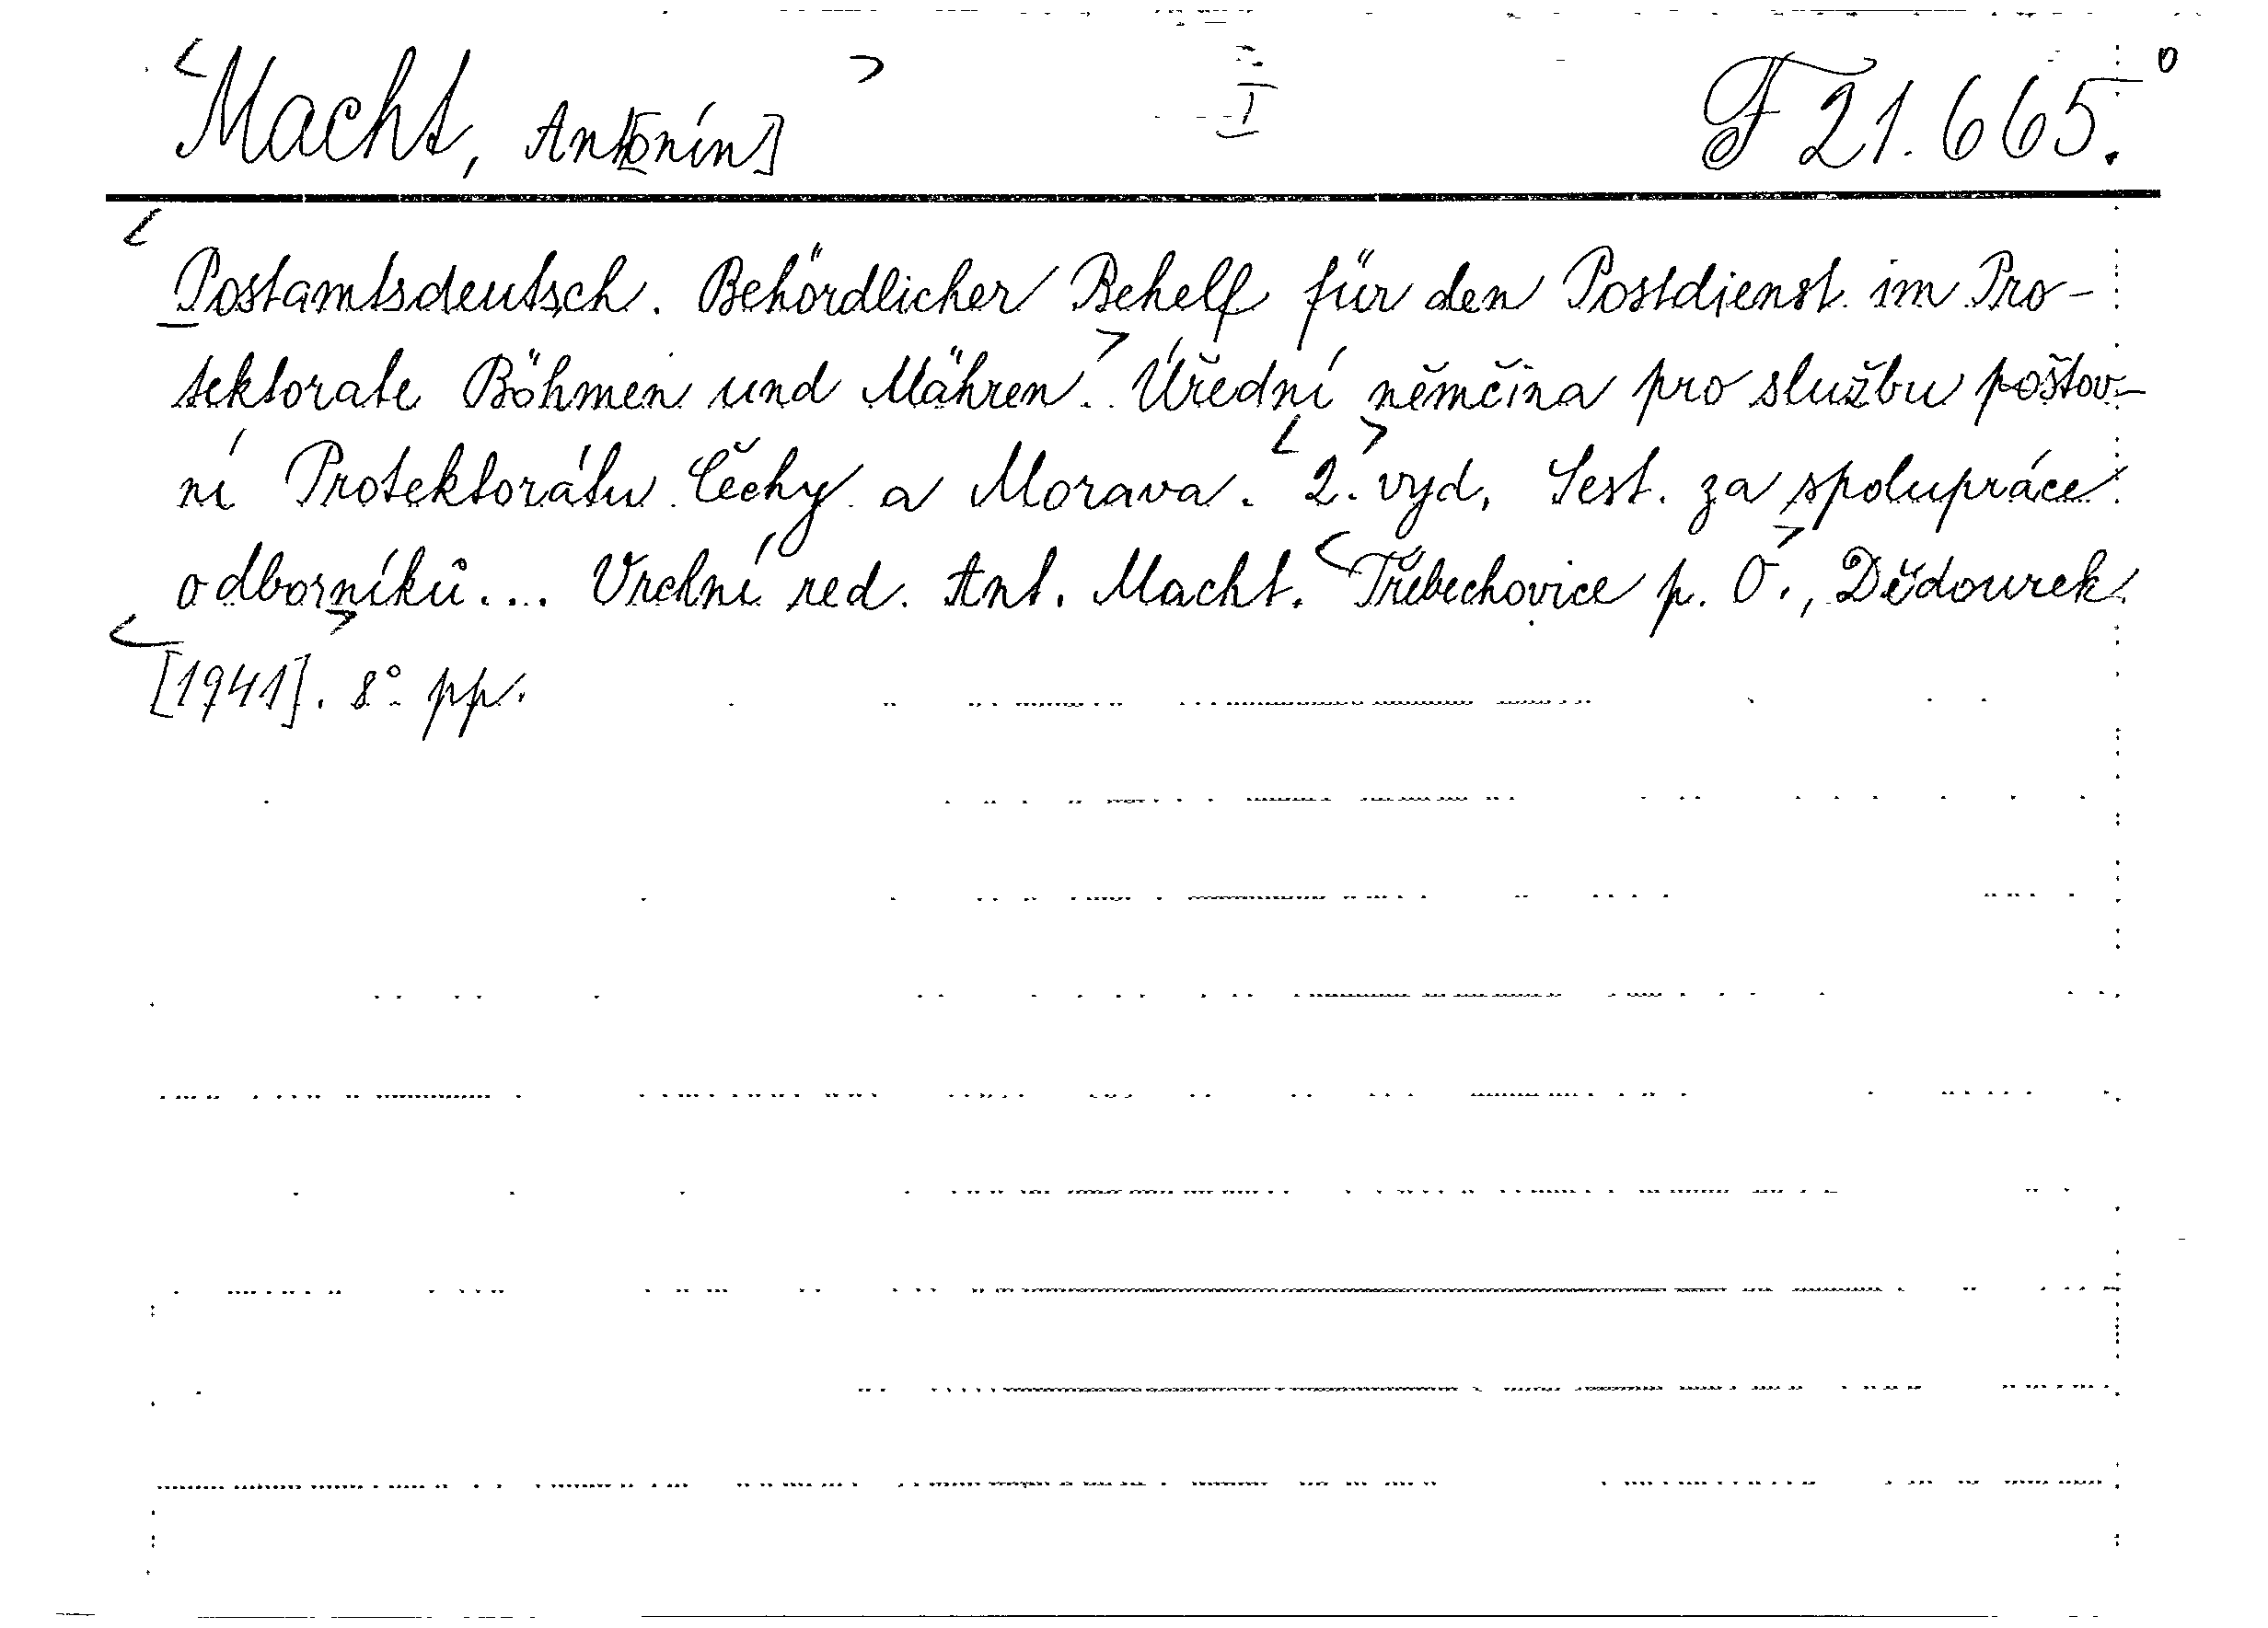 <Macht, Ant[onín]> I F 21.665.°
<Postamtsdeutsch. Behördlicher Behelf für den Postdienst im Pro-
tektorate Böhmen und Mähren.> Úřední němčina pro službu poštov-
ní Protektorátu Čechy a Morava. <2.> vyd. Sest. za spolupráce
odborníků... Vrchní red. Ant. Macht. <Třebechovice p. O.>, Dědourek
<[1941]>. 8° pp.